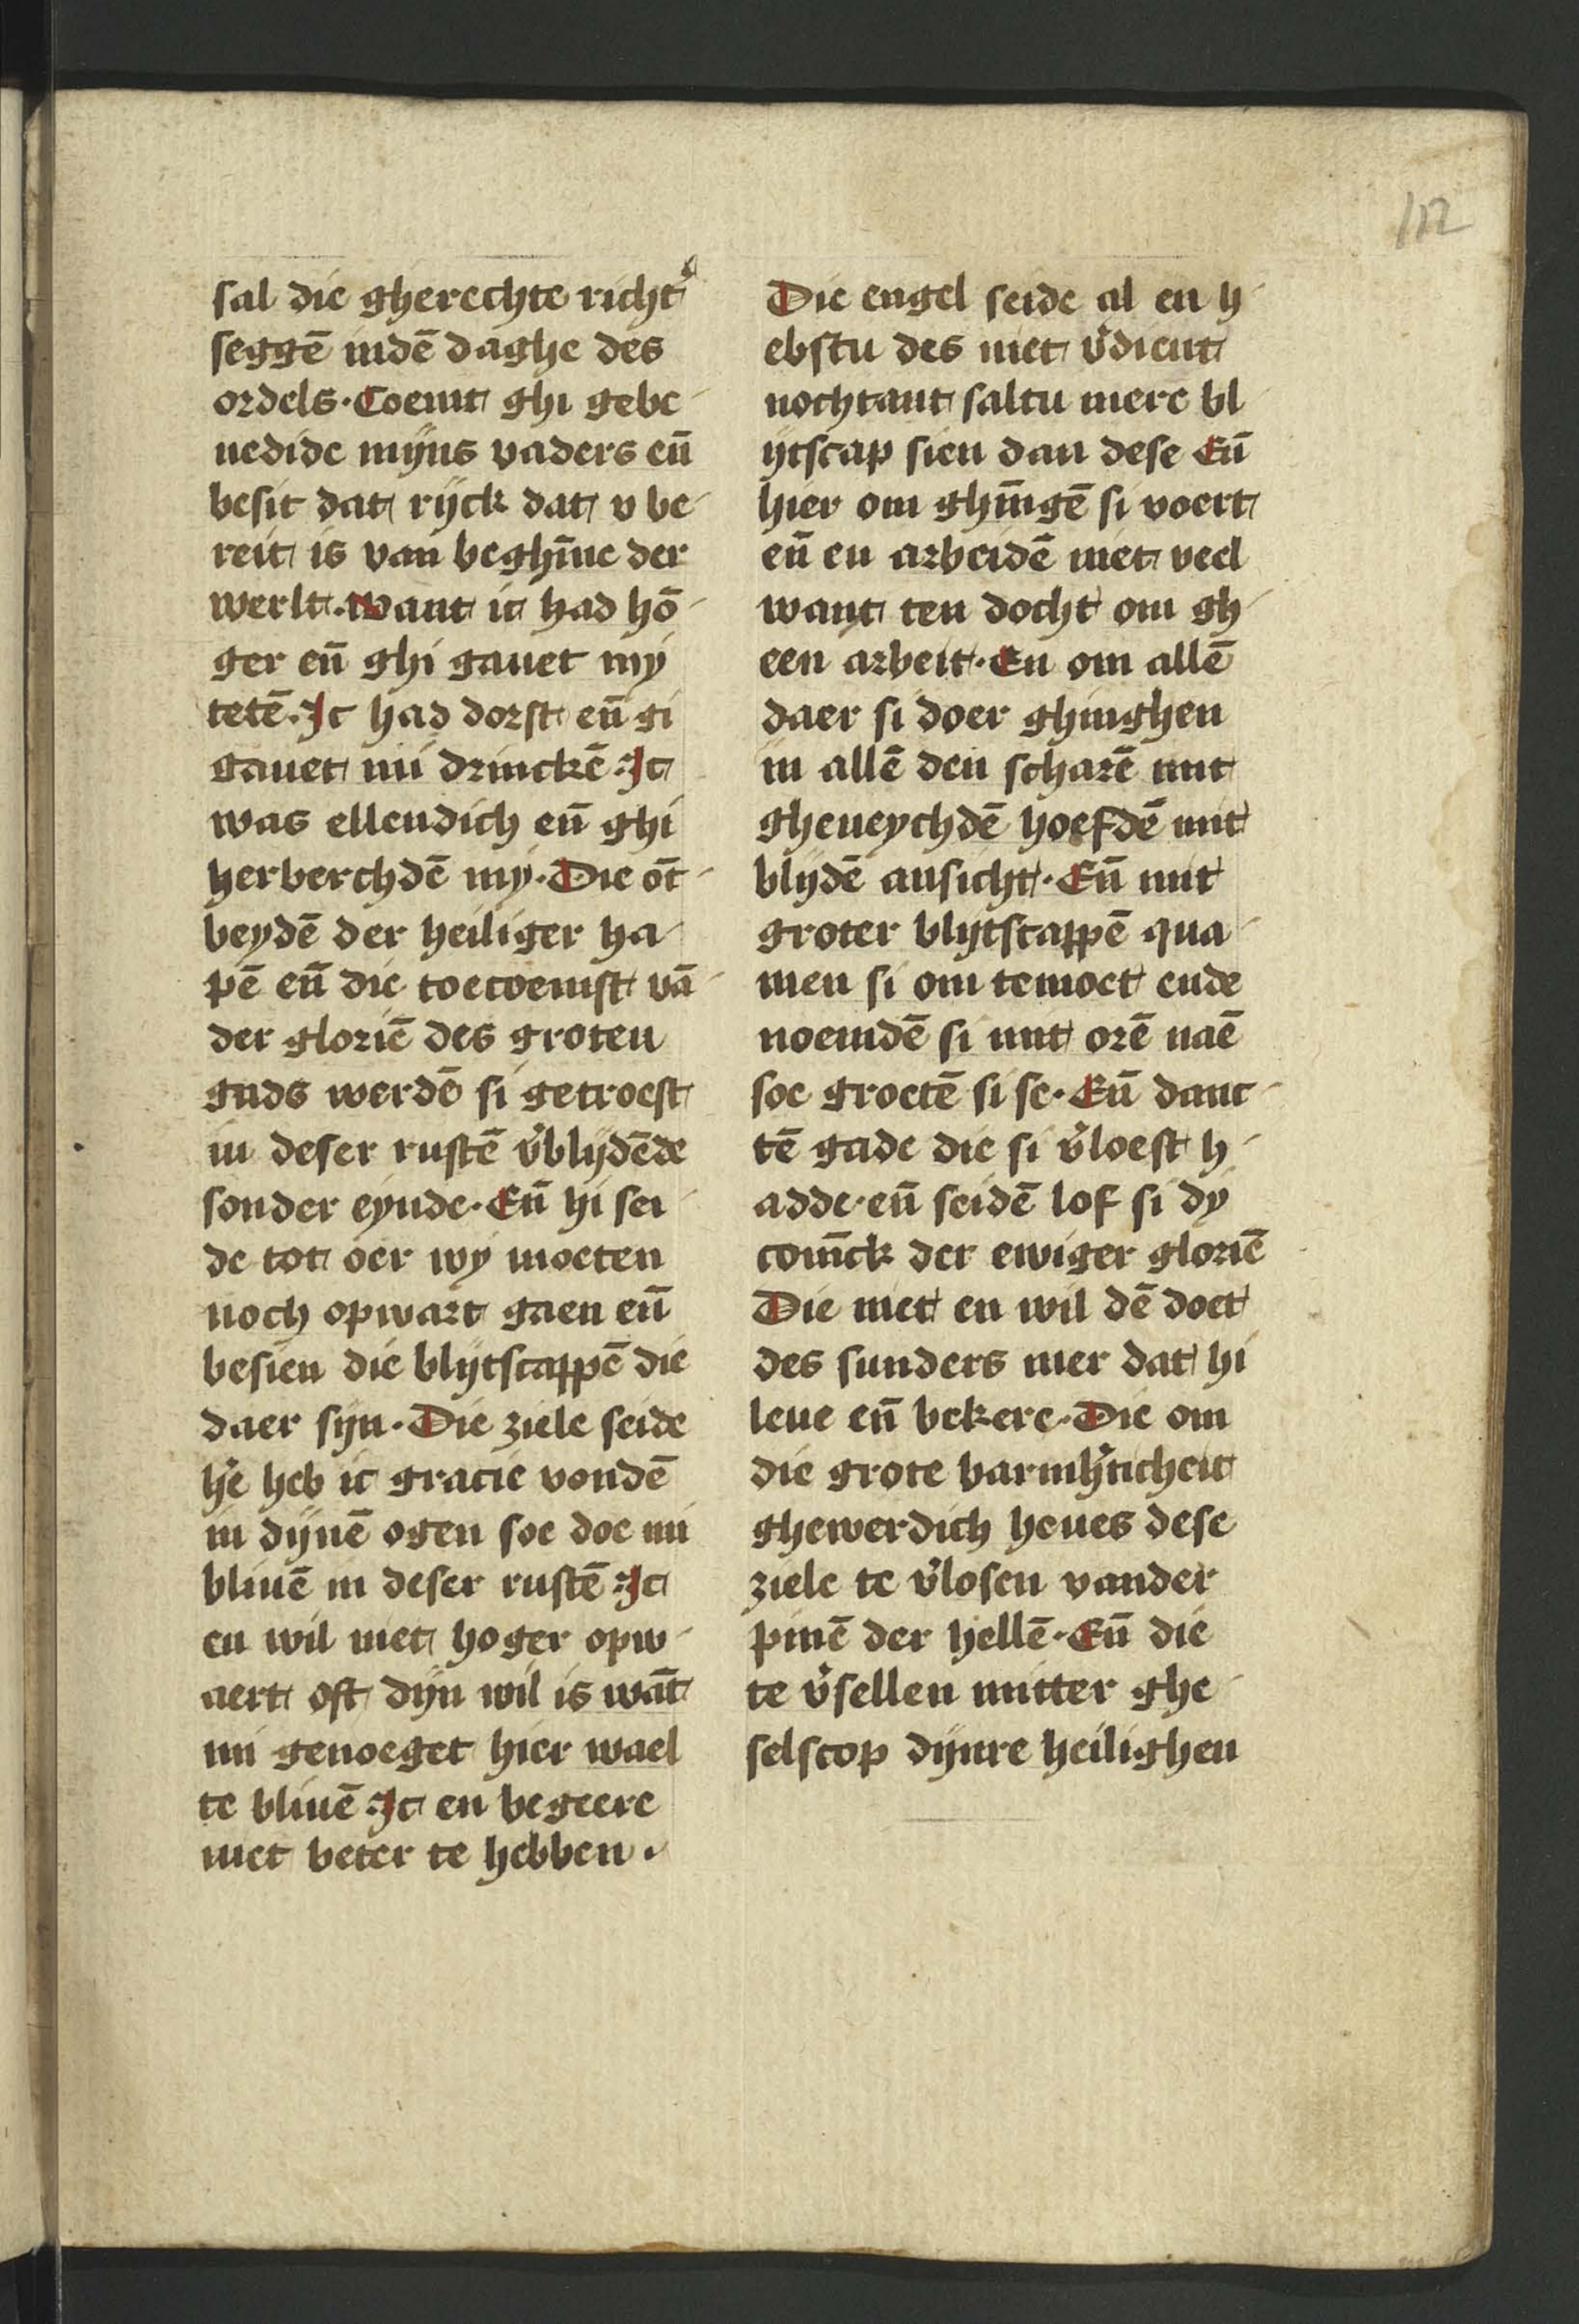 112
sal die gherechte richt᷑
seggē indē daghe des
ordels. Coemt ghi gebe-
nedide mijns vaders eū
besit dat rijck dat v be-
reit is van beghīne der
werlt. want ic had hō-
ger eū ghi gauet my
tetē. Ic had dorst eū gi
gauet mi drinckē. Ic
was ellendich eū ghi
herberchdē my. Die ōt-
beydē der heiliger ha-
pē eū die toecoemst vā-
der gloriē des groten
gads werdē si getroest
in deser rustē v᷑blijdēde
sonder eynde. Eū hi sei-
de tot oer wy moeten
noch opwart gaen eū
besien die blijtscappē die
daer sijn. Die ziele seide
he᷑ heb ic gracie vondē
in dijnē ogen soe doe mi
bliuē in deser rustē. Ic
en wil niet hoger opw-
aert oft dijn wil is wāt
mi genoeget hier wael
te bliuē. Ic en begeere
niet beter te hebben.
Die engel seide al en h-
ebstu des niet v᷑dient
nochtant saltu mere bl-
ijtscap sien dan dese Eū
hier om ghīngē si voert
eū en arbeidē niet veel
want ten docht om gh-
een arbeit. En om allē
daer si doer ghinghen
in allē den scharē mit
gheneychdē hoefdē mit
blijdē ansicht. Eū mit
groter blijtscappē qua-
men si om temoet ende
noemdē si mit orē naē
soe groetē si se. Eū danc-
tē gade die si v᷑loest h-
adde. eū seidē lof si dy
conīck der ewiger gloriē
Die niet en wil dē doet
des sunders mer dat hi
leue eū bekere. Die om
die grote barmh᷑ticheit
ghewerdich heues dese
ziele te v᷑losen vander
pinē der hellē. Eū die
te v᷑sellen mitter ghe-
selscop dijnre heilighen